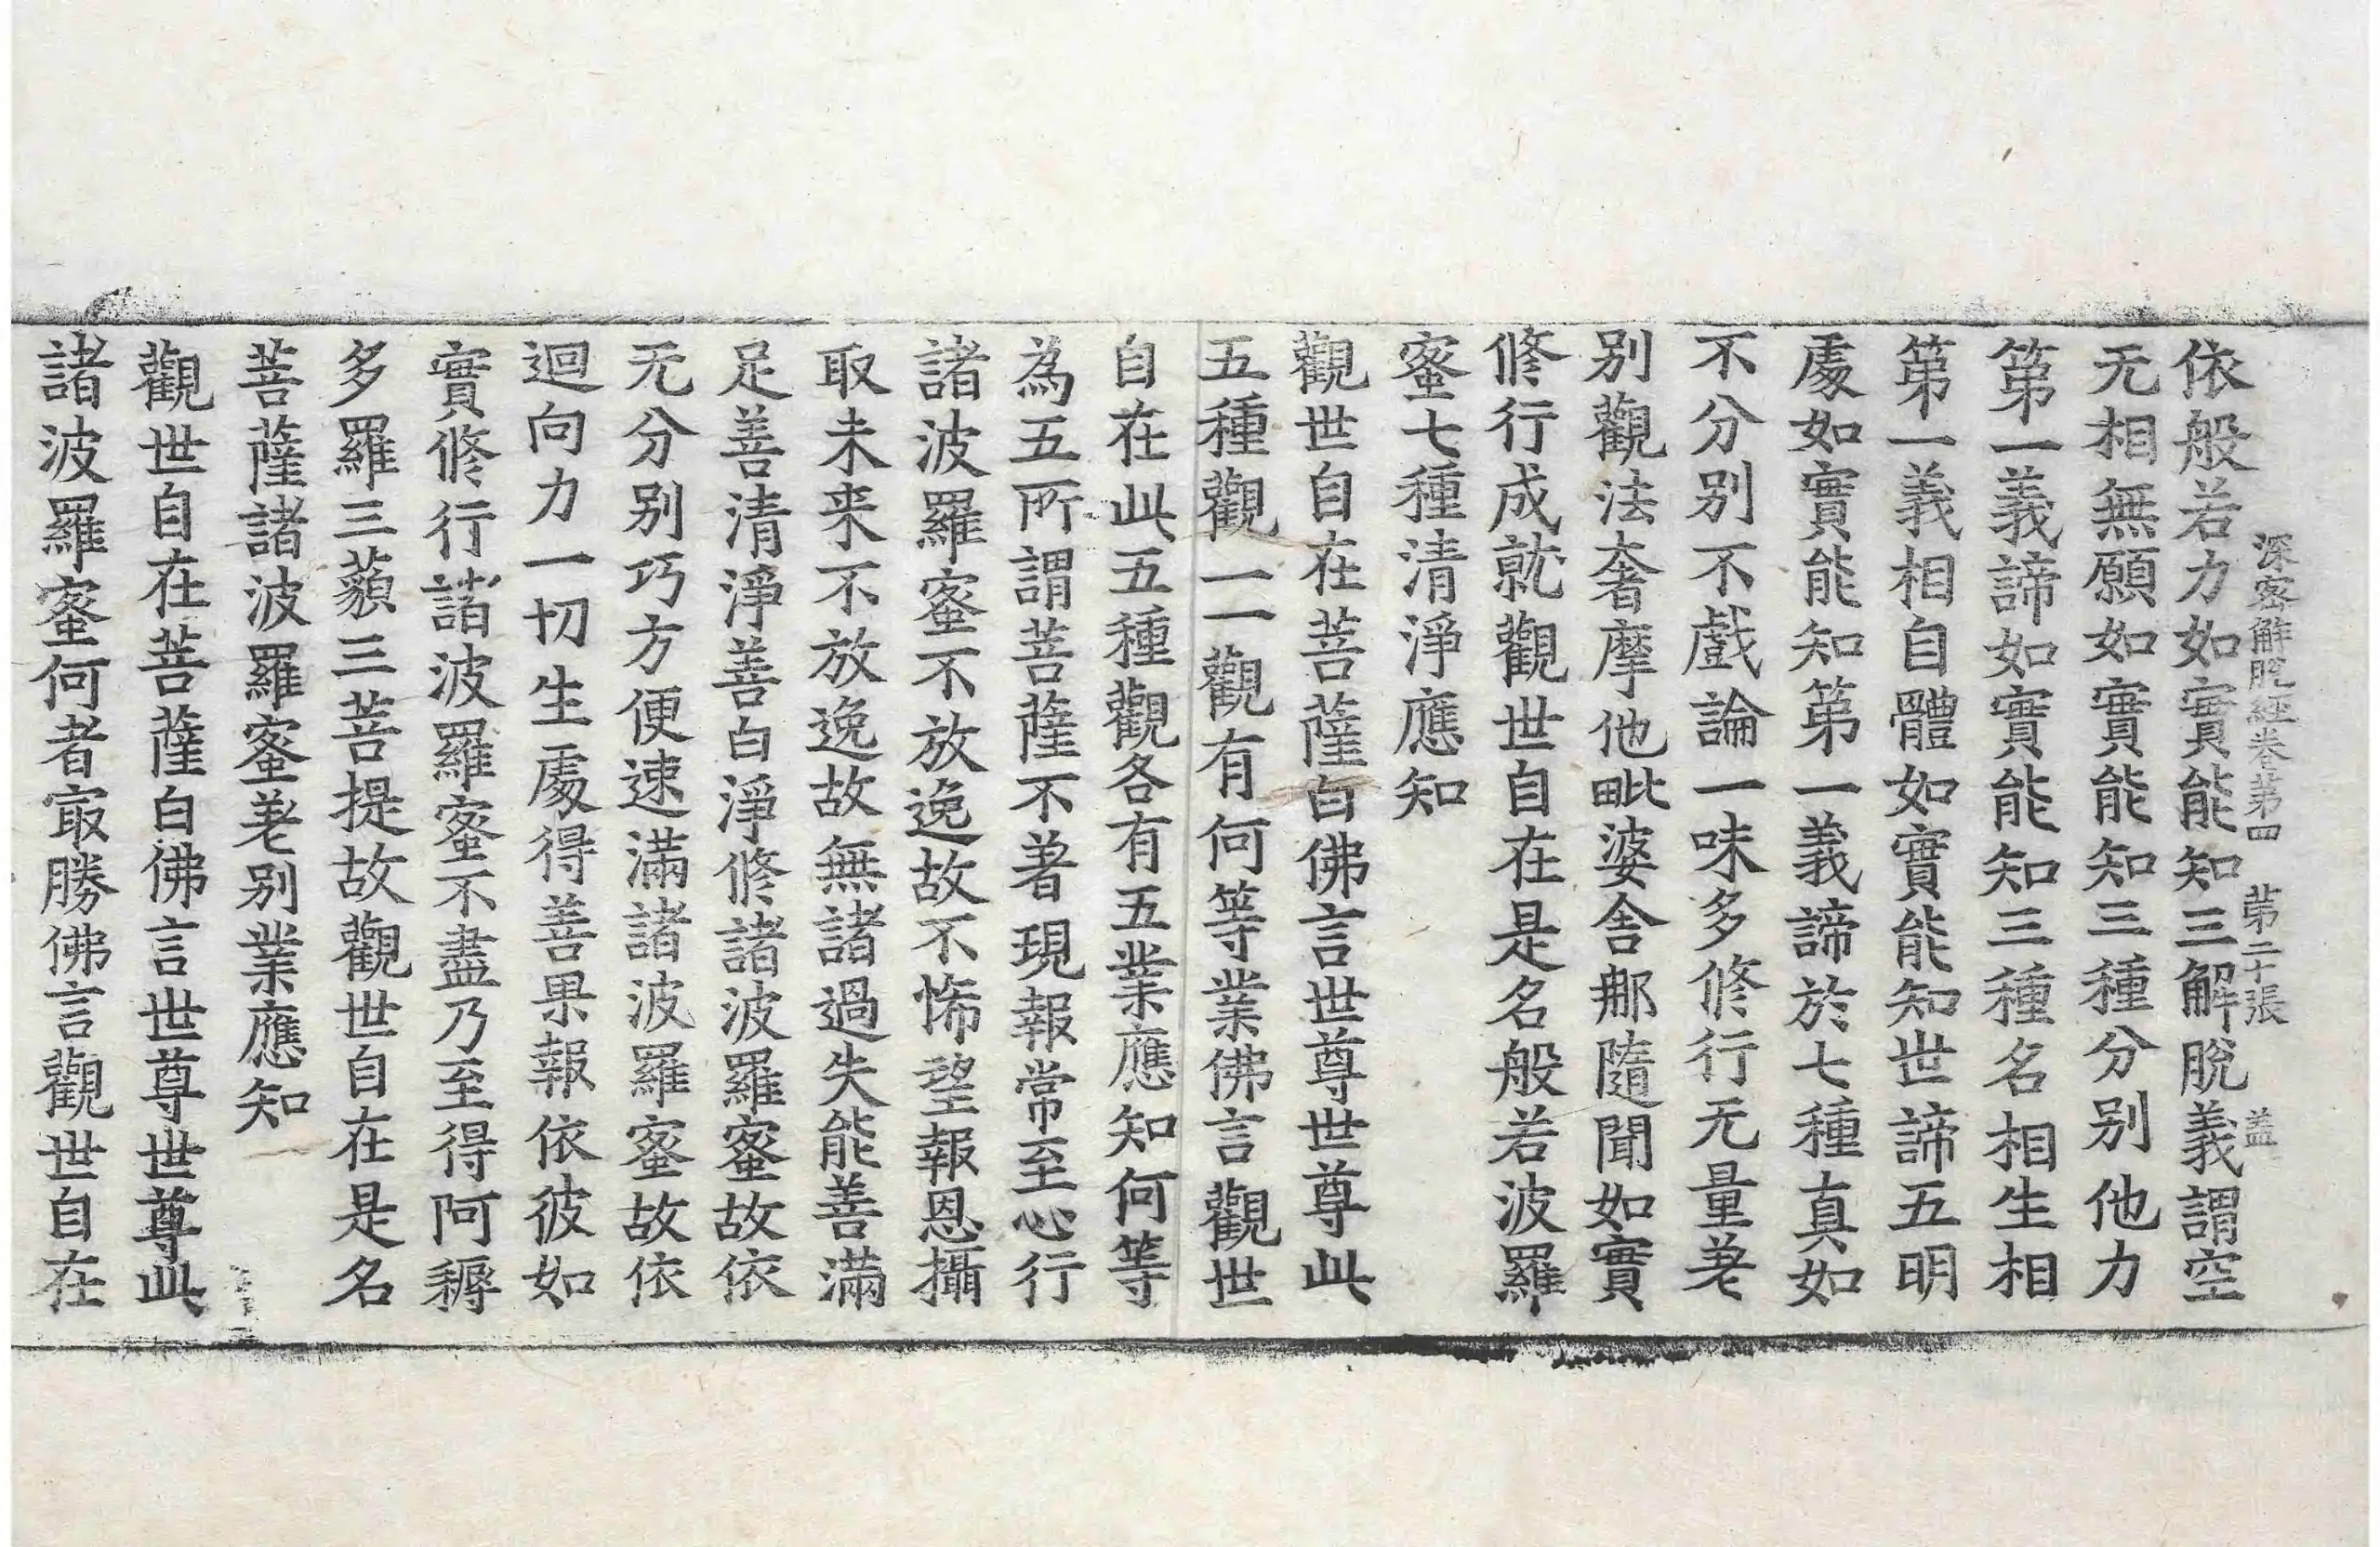 深密解脫經卷第四　第二十張　盖
依般若力如實能知三解脫義謂空
无相無願如實能知三種分别他力
第一義諦如實能知三種名相生相
第一義相自體如實能知世諦五明
處如實能知第一義諦於七種真如
不分别不戲論一味多修行无量差
别觀法奢摩他毗婆舍那隨聞如實
修行成就觀世自在是名般若波羅
蜜七種清淨應知
觀世自在菩薩白佛言世尊世尊此
五種觀一一觀有何等業佛言觀世
自在此五種觀各有五業應知何等
為五所謂菩薩不著現報常至心行
諸波羅蜜不放逸故不悕望報恩攝
取未来不放逸故無諸過失能善滿
足善清淨善白淨修諸波羅蜜故依
无分别巧方便速滿諸波羅蜜故依
迴向力一切生處得善果報依彼如
實修行諸波羅蜜不盡乃至得阿耨
多羅三藐三菩提故觀世自在是名
菩薩諸波羅蜜差别業應知
觀世自在菩薩白佛言世尊世尊此
諸波羅蜜何者㝡勝佛言觀世自在